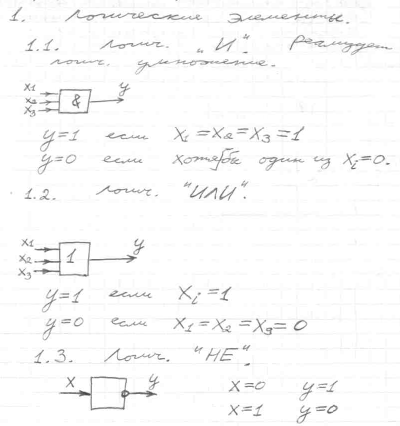 1. Логические элементы.
1.1. логич. „И". Реализует
логич. умножение.
x1
x2
x3
&
y
y=1 если x1=x2=x3=1
y=0 если хотя бы один из xi=0.
1.2. логич. "ИЛИ".
x1
x2
x3
1
y
y=1 если xi=1
y=0 если x1=x2=x3=0
1.3. Логич. "НЕ".
x
y
x=0 y=1
x=1 y=0